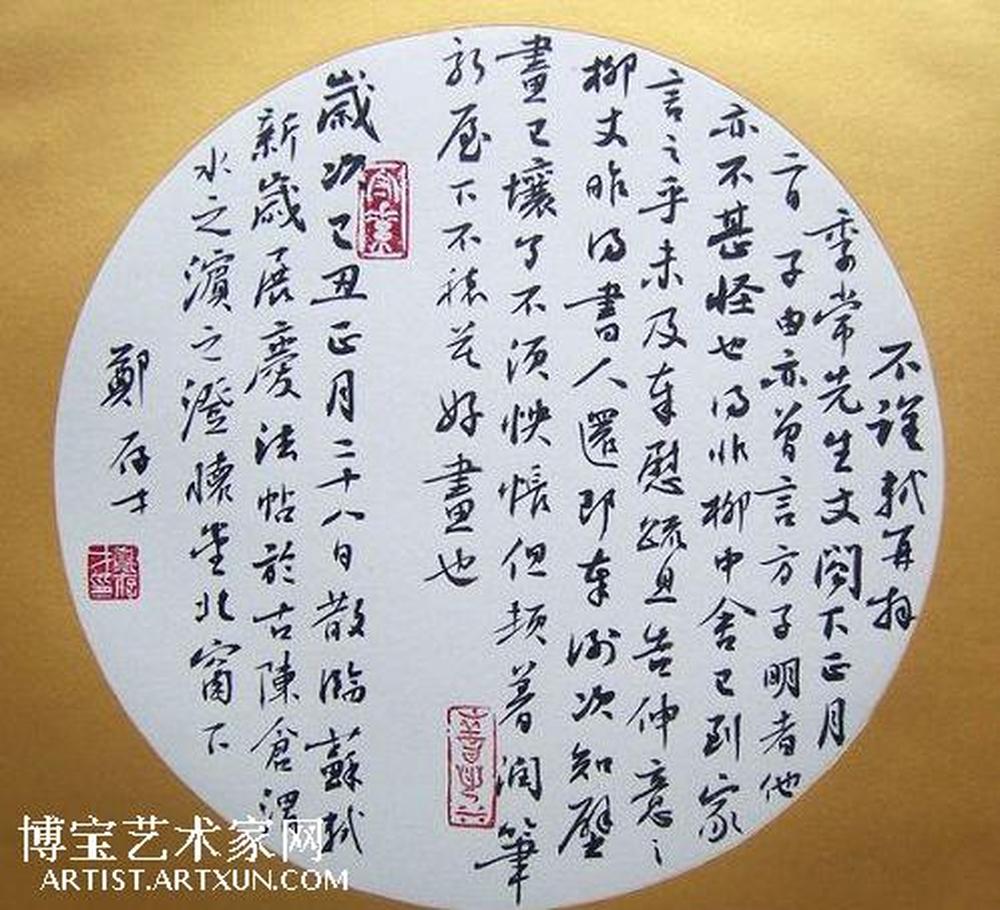 不謹軾再拜
季常先生文閣下正月
二日子由亦曾言方子明者他
亦不甚怪也得非柳中舍已到家
言之乎未及奉慰疏且告伸意之
柳丈昨得書人還即奉謝次知壁
畫已壞了不須怏悵但頓著潤筆
新屋下不愁無好畫也
歲次己丑正月二十八日散臨蘇軾
新歲展慶法帖於古陳倉渭
水之濱之澄懷堂北窗下
鄭存才
博宝艺术家网
ARTIST.ARTXUN.COM